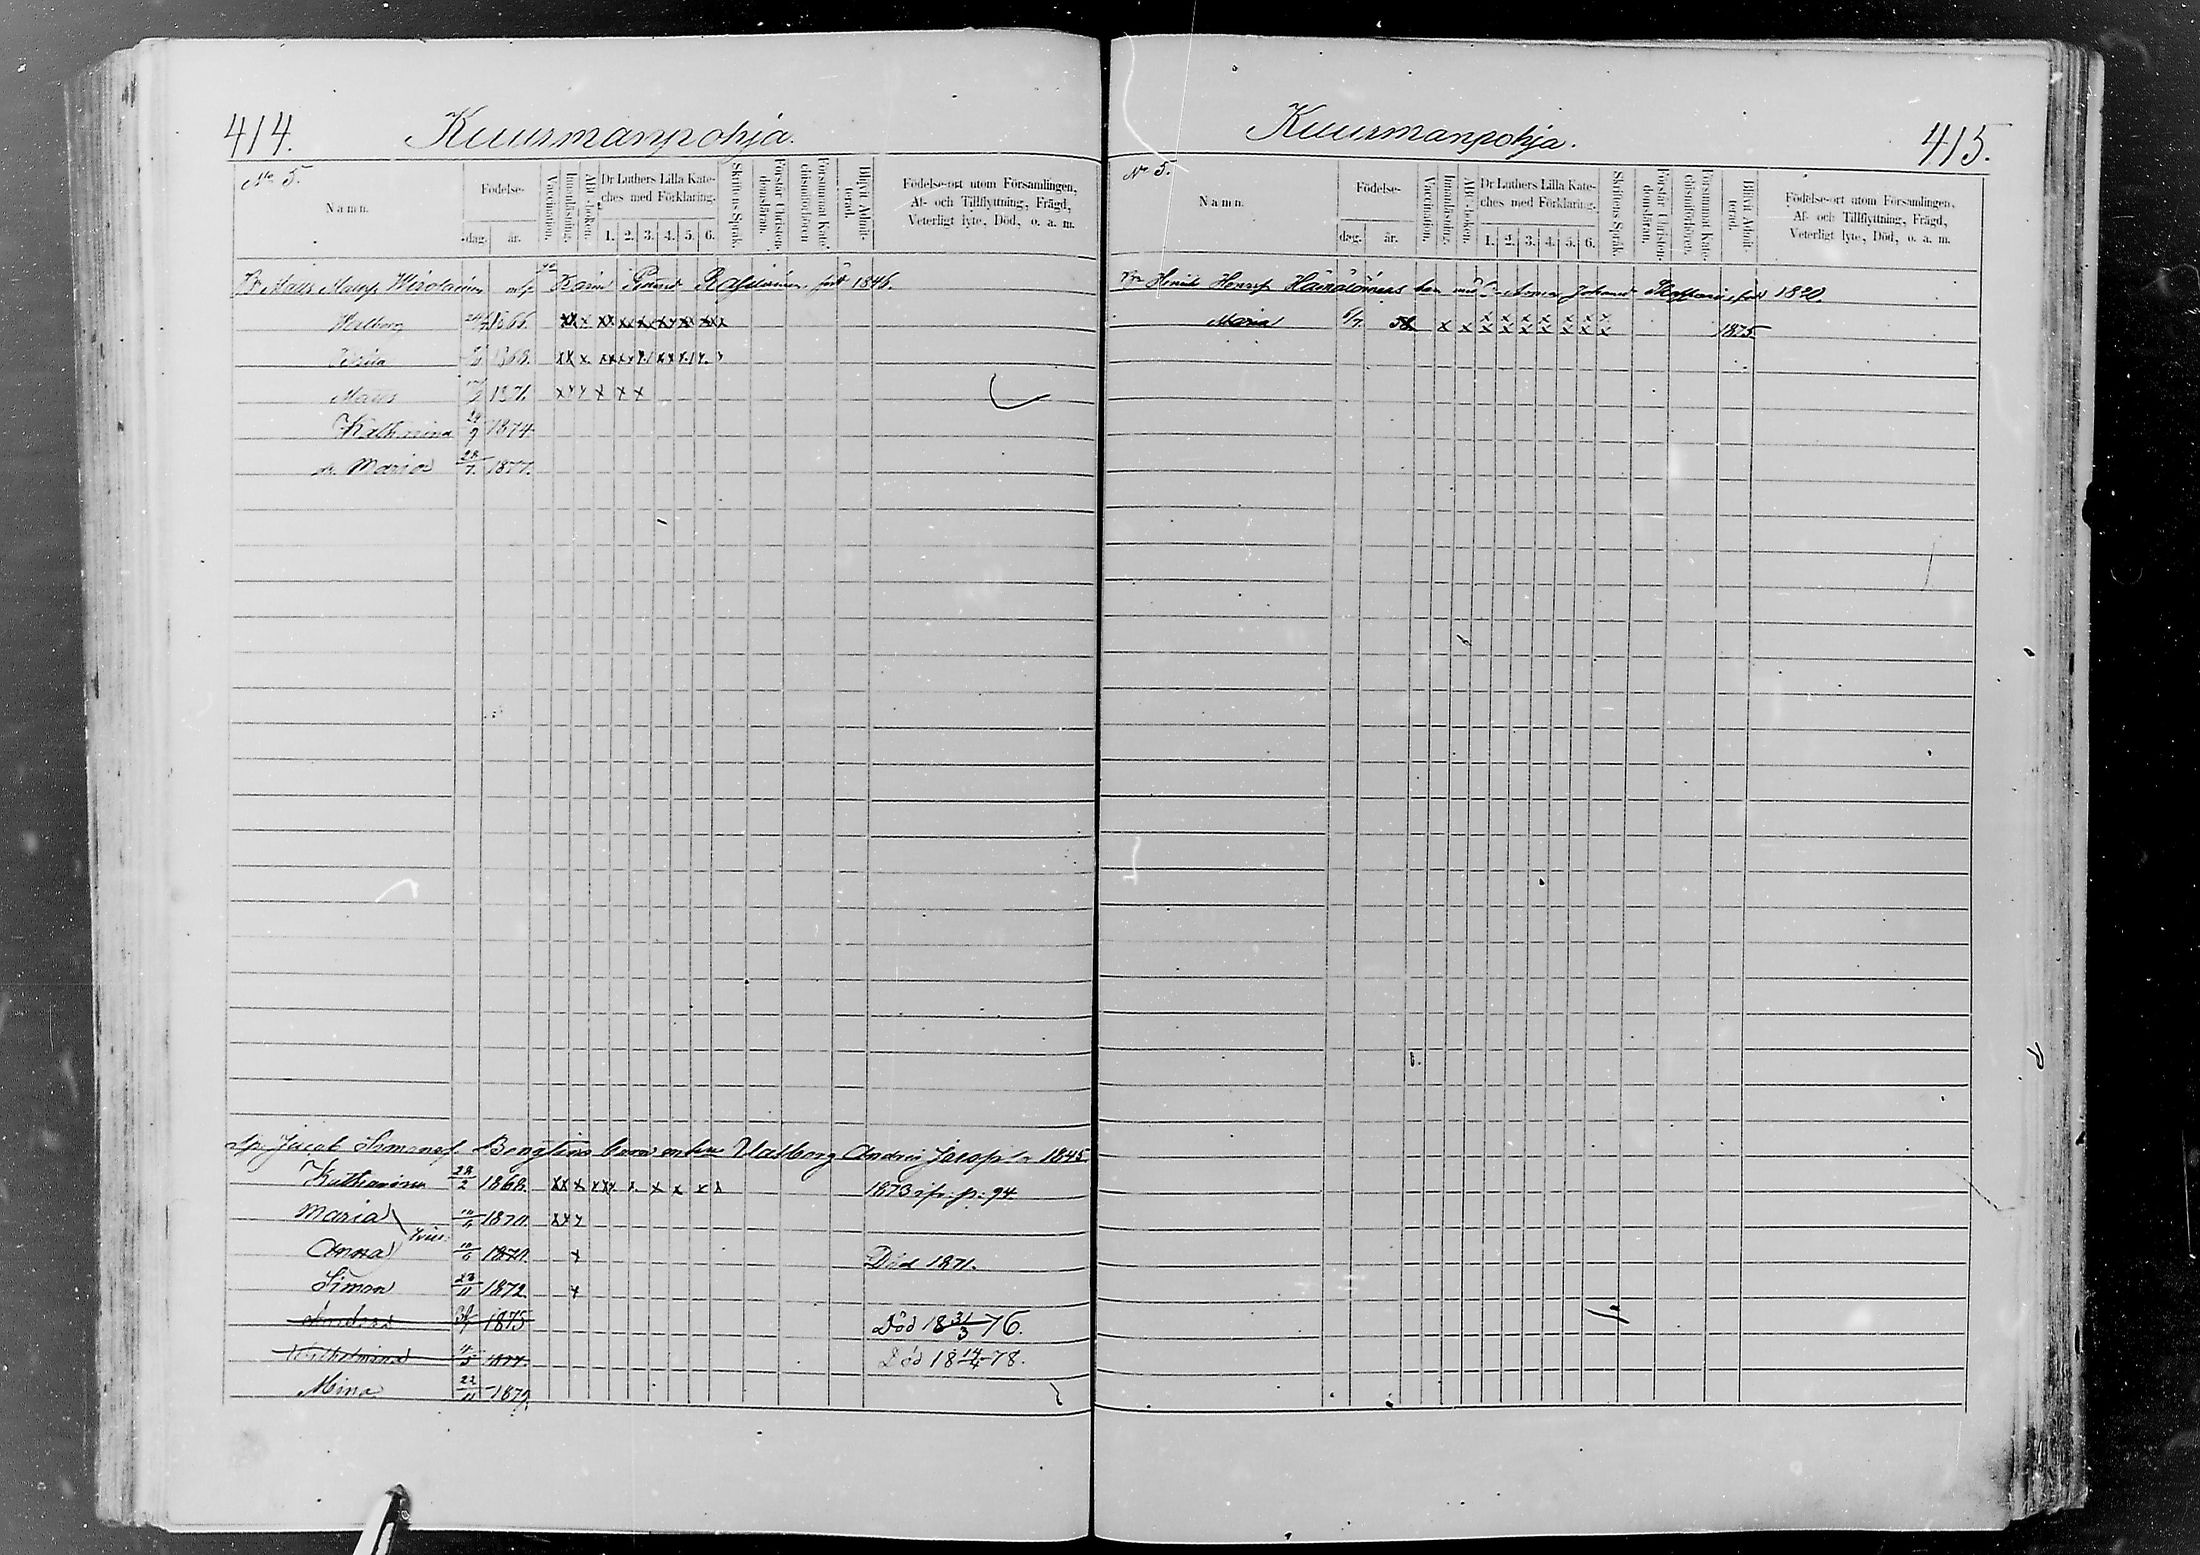 414.
Kuurmanpohja.
No 5.
Namn.
Födelse-
dag.
år.
Vaccination.
Innanläsning.
ABC-boken.
Dr Luthers Lilla Kate-
ches med Förklaring.
1. 2. 3. 4. 5. 6.
Skriftens Språk.
Förstår Christen-
domsläran.
Försummat Kate-
chismiförhören
Blivit Admit-
terad.
Födelse-ort utom Församlingen,
Af- och Tillflyttning, Frägd,
Veterligt lyte, Död, o. a. m.
Karin 1846.
Walborg 1866. x x x x x x x x x
1868. x x x x x x x x x
Mats 1871. x x x x x x
Katharina 29/9 1874
dr. Maria 28/7 1877.
Jacob Simonsf. Bengtins barn Valborg Andrei 1845
Katharina 28/2 1868. x x x x x x x x x x x 1873 p. 94
Maria 10/6 1870. x x x
Anna 10/6 1870. x Död 1871.
Simon 23/11 1872 x
1875 Död 18 31/3 76.
Wilhelmina 4/5 1877. Död 18 14/4 78.
Mina 22/11 1879.
Kuurmanpohja.
415.
No 5.
Namn.
Födelse-
dag.
år.
Vaccination.
Innanläsning.
ABC-boken.
Dr Luthers Lilla Kate-
ches med Förklaring.
1. 2. 3. 4. 5. 6.
Skriftens Språk.
Förstår Christen-
domsläran.
Försummat Kate-
chismiförhören.
Blivit Admit-
terad.
Födelse-ort utom Församlingen,
Af- och Tillflyttning, Frägd,
Veterligt lyte, Död, o. a. m.
Henrik Henrsf Anna Johansd 1820.
Maria 6/7 58 x x x x x x x x x 1875